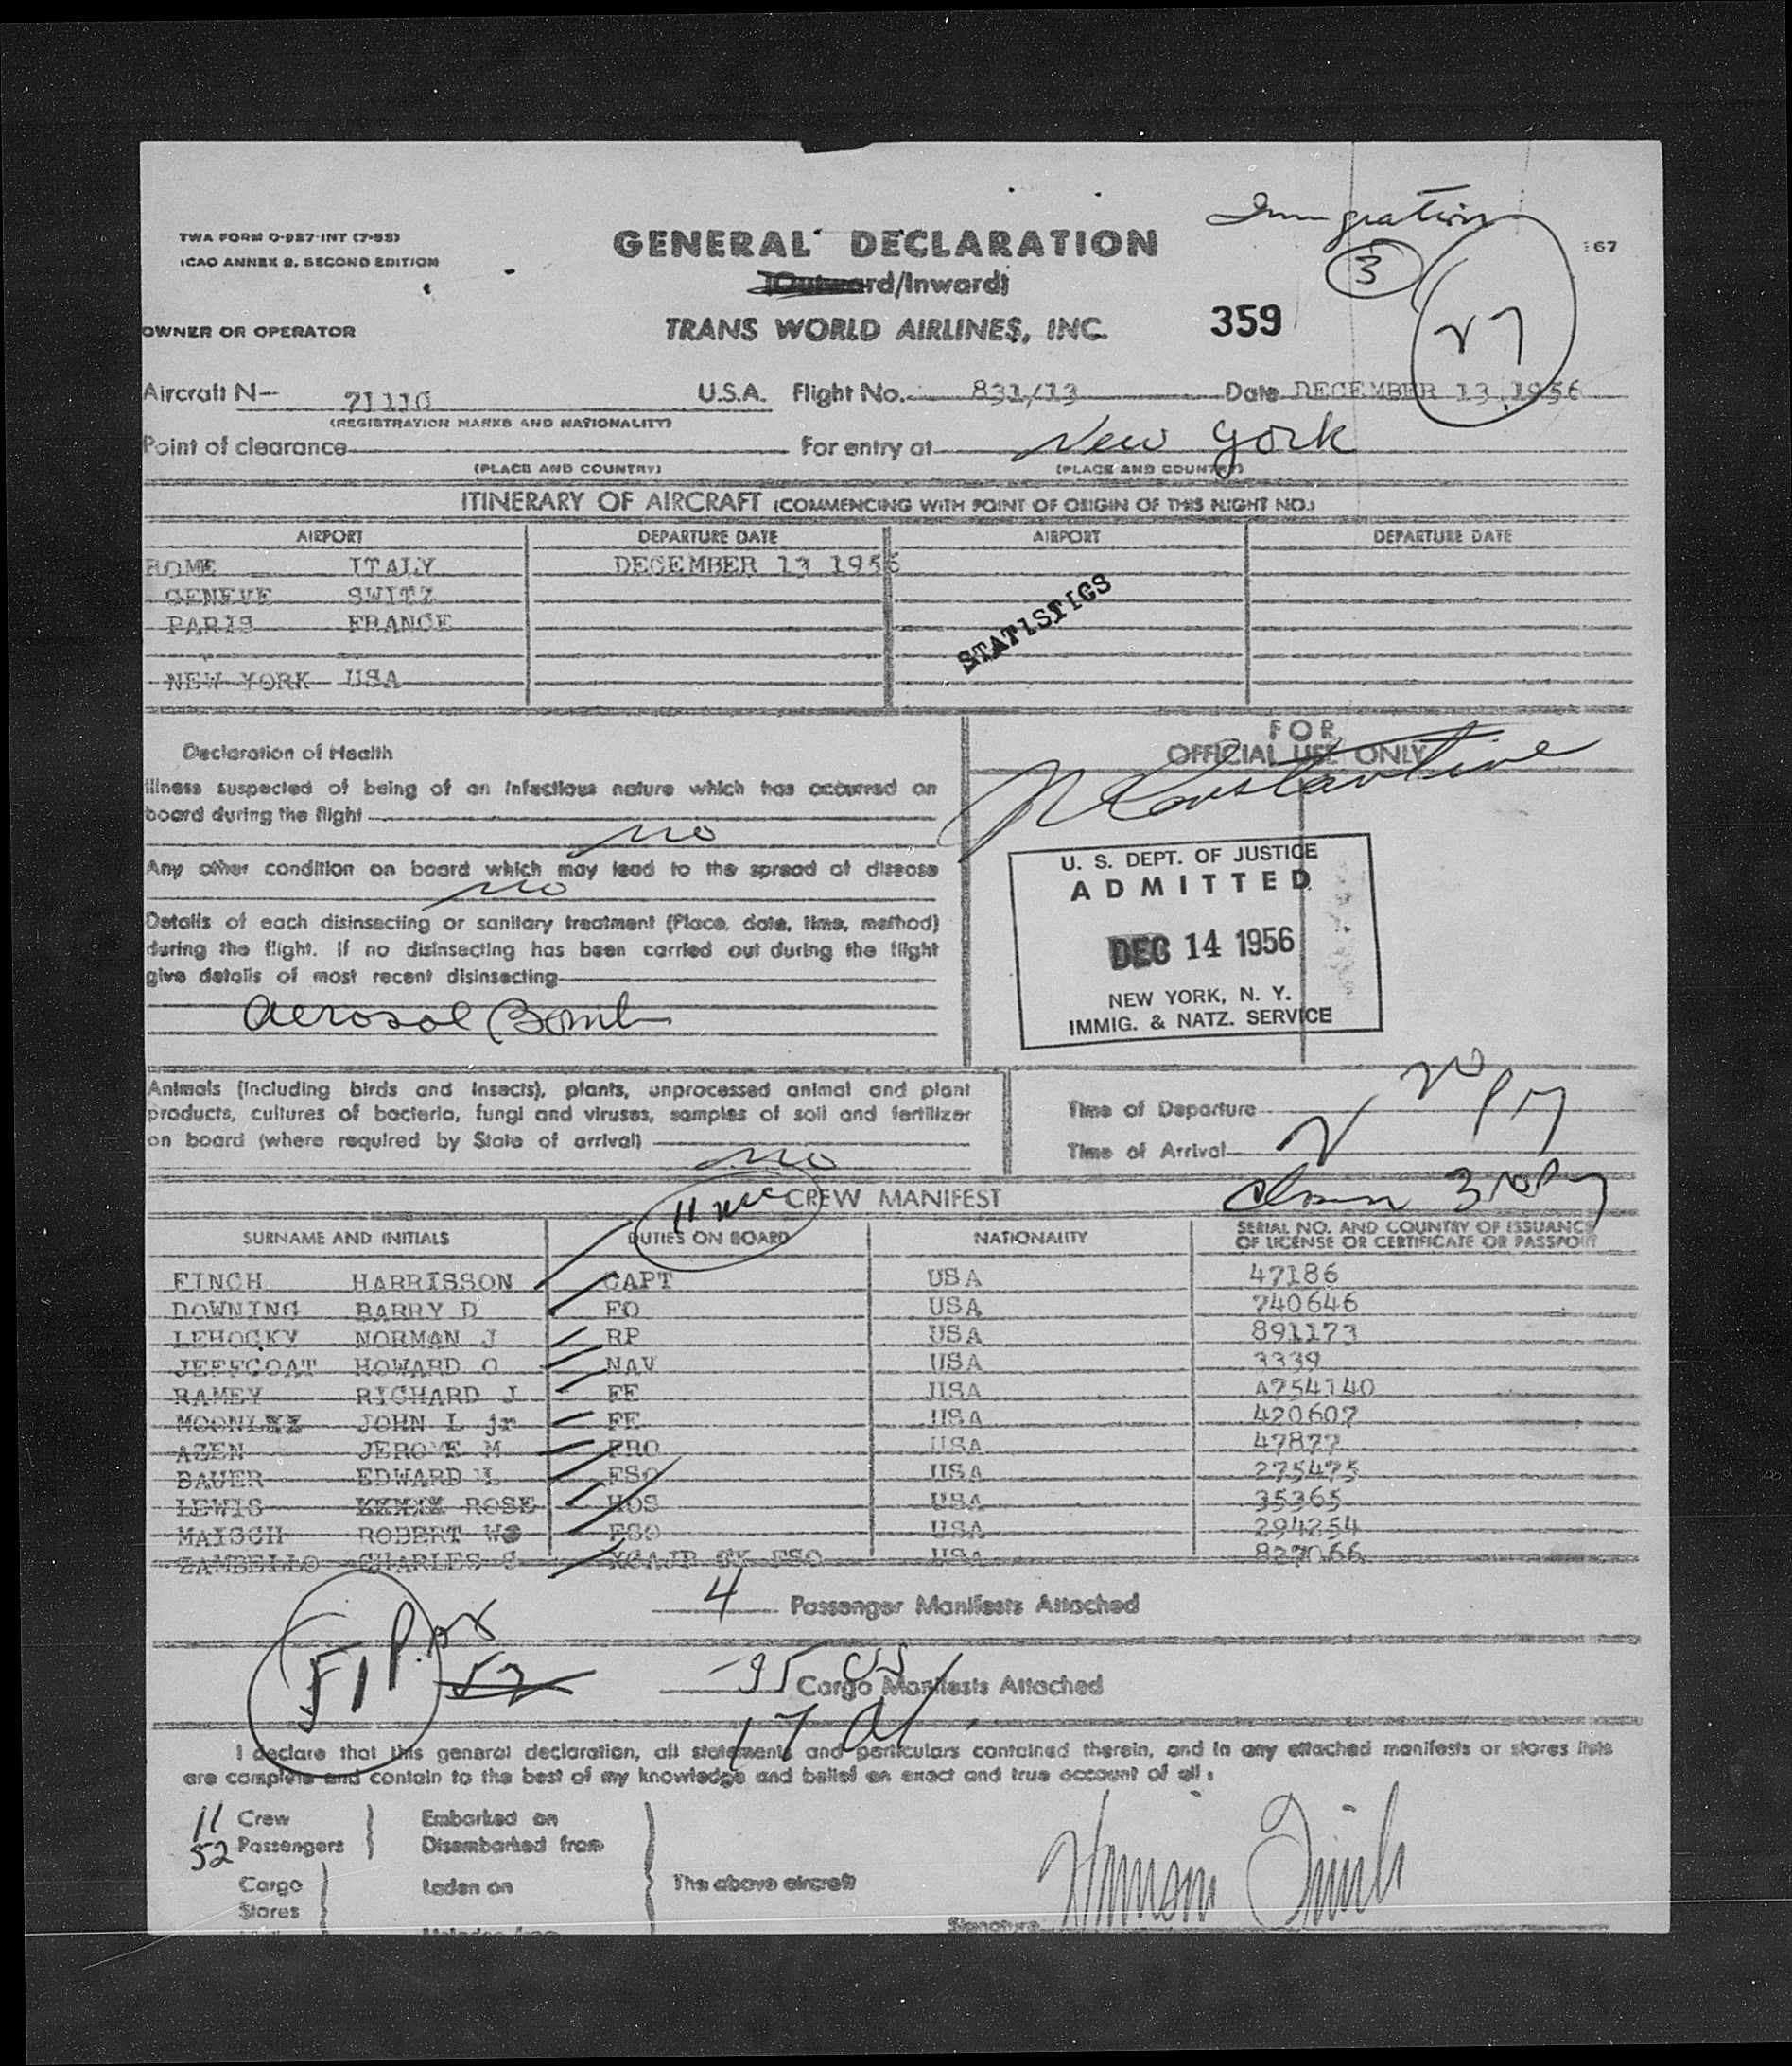 Immigration
TWA FORM O-987-INT (7-55)
ICAO ANNEX 9, SECOND EDITION
GENERAL DECLARATION
(Outward/Inward)
3
67
27
OWNER OR OPERATOR TRANS WORLD AIRLINES, INC. 359
Aircraft N- 7111G U.S.A. Flight No. 831/13 Date DECEMBER 13 1956
(REGISTRATION MARKS AND NATIONALITY)
Point of clearance For entry at New York
(PLACE AND COUNTRY) (PLACE AND COUNTRY)
ITINERARY OF AIRCRAFT (COMMENCING WITH POINT OF ORIGIN OF THIS FLIGHT NO.)
AIRPORT DEPARTURE DATE AIRPORT DEPARTURE DATE
ROME ITALY DECEMBER 13 1956
GENEVE SWITZ
PARIS FRANCE
STATISTICS
NEW YORK USA
FOR
OFFICIAL USE ONLY
Declaration of Health
Illness suspected of being of an infectious nature which has occurred on
board during the flight
no
Any other condition on board which may lead to the spread of disease
no
Details of each disinsecting or sanitary treatment (Place, date, time, method)
during the flight. If no disinsecting has been carried out during the flight
give details of most recent disinsecting
Aerosol Bomb
U. S. DEPT. OF JUSTICE
ADMITTED
DEC 14 1956
NEW YORK, N. Y.
IMMIG. & NATZ. SERVICE
Animals (including birds and insects), plants, unprocessed animal and plant
products, cultures of bacteria, fungi and viruses, samples of soil and fertilizer
on board (where required by State of arrival)
no
Time of Departure
Time of Arrival
PM
CREW MANIFEST
SURNAME AND INITIALS DUTIES ON BOARD NATIONALITY SERIAL NO. AND COUNTRY OF ISSUANCE
OF LICENSE OR CERTIFICATE OR PASSPORT
FINCH HARRISSON CAPT USA 47186
DOWNING BARRY D FO USA 740646
LEHOCKY NORMAN J RP USA 891173
JEFFCOAT HOWARD O NAV USA 3339
RAMEY RICHARD J FE USA A754140
JOHN L jr FE USA 420607
AZEN JEROME M FRO USA 47877
BAUER EDWARD L FSO USA 275475
LEWIS ROSE HOS USA 35365
MAISCH ROBERT W FSO USA 294254
ZAMBELLO CHARLES USA 827066
4 Passenger Manifests Attached
51 52
35 US
Cargo Manifests Attached
17 al
I declare that this general declaration, all statements and particulars contained therein, and in any attached manifests or stores lists
are complete and contain to the best of my knowledge and belief an exact and true account of all:
11 Crew Embarked on
52 Passengers Disembarked from
Cargo Laden on The above aircraft
Stores
Signature